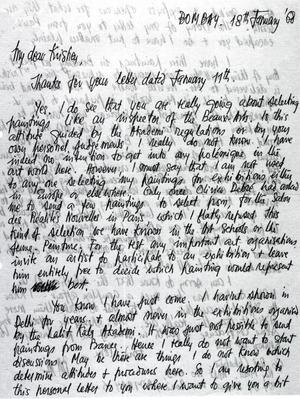 BOMBAY. 18th January '6
My dear Krishen,
Thanks for your letter dated January 11th.
Yes, I do see that you are really going about selecting
paintings like an inspector of the Beaux Arts. Is this
attitude guided by the Akademi regulations or by your
own personal judgements? I really do not know. I have
indeed no intention to get into any polemique in the
art world here. However I must say that I am not used
to any one selecting my paintings for exhibitions either
in Europe or elsewhere. Only once Olivier Debré had asked
me to send a few paintings to select from, for the Salon
des Réalités Nouvelles in Paris which I flatly refused. This
kind of selection we have known in the Art Schools or the
Please. For the rest any important art organisations
invite an artist to participate to an exhibition & leave
him entirely free to decide which painting would represent
him best.
You know I have just come. I havent shown in
Delhi for years & almost never in the exhibitions organised
by the Lalit Kala Akademi. It was just not possible to send
paintings from France. Hence I really do not want to start
discussions. May be there are things I do not know which
determine attitudes & procedures here. So I am resorting to
this personal letter to you where I want to give you a bit